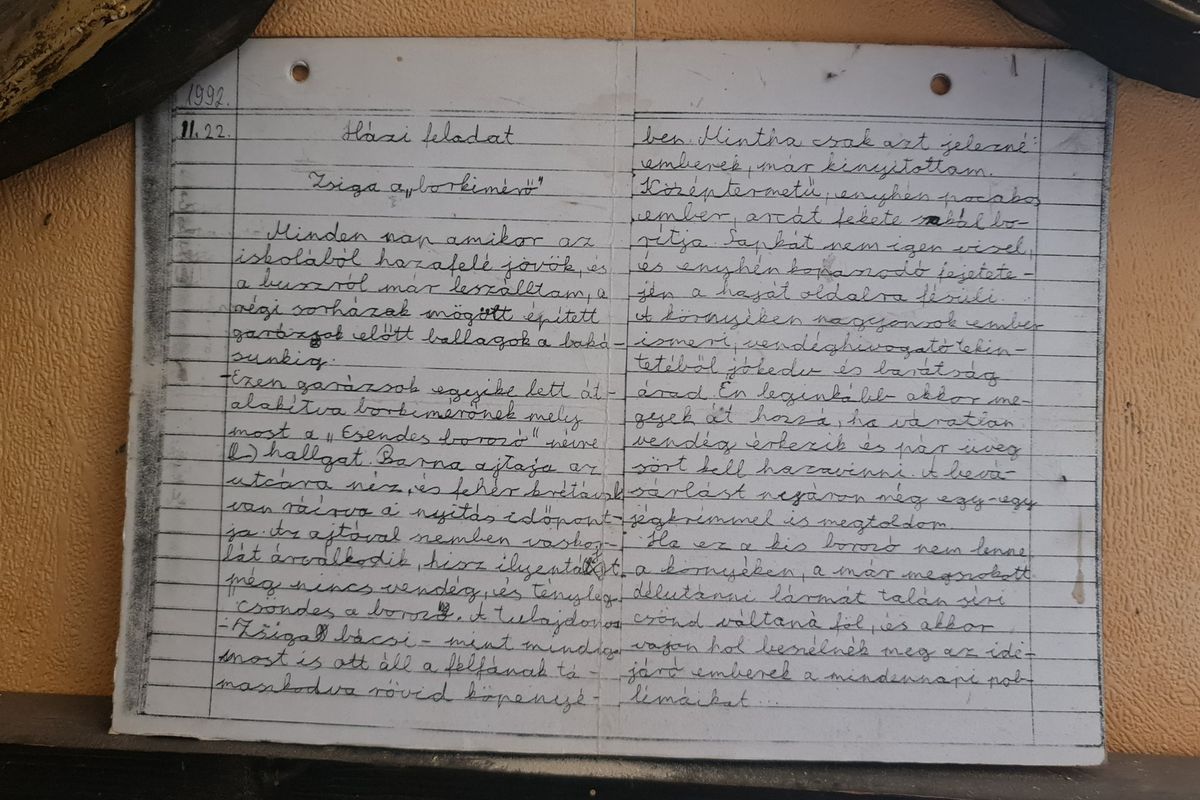 1992.
11.22.
Házi feladat
Zsiga a „borkimérő"
Minden nap amikor az
iskolából hazafelé jövök, és
a buszról már leszálltam, a
régi sorházak mögött épített
garázsok előtt ballagok a baká-
sunkig.
Ezen garázsok egyike lett át-
alakítva borkimérőnek mely
most a „Csendes borozó" névre
hallgat. Barna ajtaja az
utcára néz, és fehér krétával
van ráírva a nyitás időpont-
ja. Az ajtóval szemben vaskor-
lát árválkodik, hisz ilyentájt
még nincs vendég, és tényleg
csöndes a borozó. A tulajdonos
- Zsiga bácsi - mint mindig
most is ott áll a félfának tá-
maszkodva rövid köpenyé-
ben. Mintha csak azt jelezné:
emberek, már kinyitottam.
Középtermetű, enyhén pocakos
ember, arcát fekete szakál bo-
rítja. Sapkát nem igen visel,
és enyhén kopaszodó fejetete-
jén a haját oldalra fésüli.
A környéken nagyonsok ember
ismeri, vendéghivogató tekin-
tetéből jókedv és barátság
árad. Én leginkább akkor me-
gyek át hozzá, ha váratlan
vendég érkezik és pár üveg
sört kell hazavinni. A bevá-
sárlást nyáron még egy-egy
jégkrémmel is megtoldom.
Ha ez a kis borozó nem lenne
a környéken, a már megszokott
délutánni lármát talán síri
csönd váltaná föl, és akkor
vajon hol beszélnék meg az ide-
járó emberek a mindennapi pob-
lémáikat...